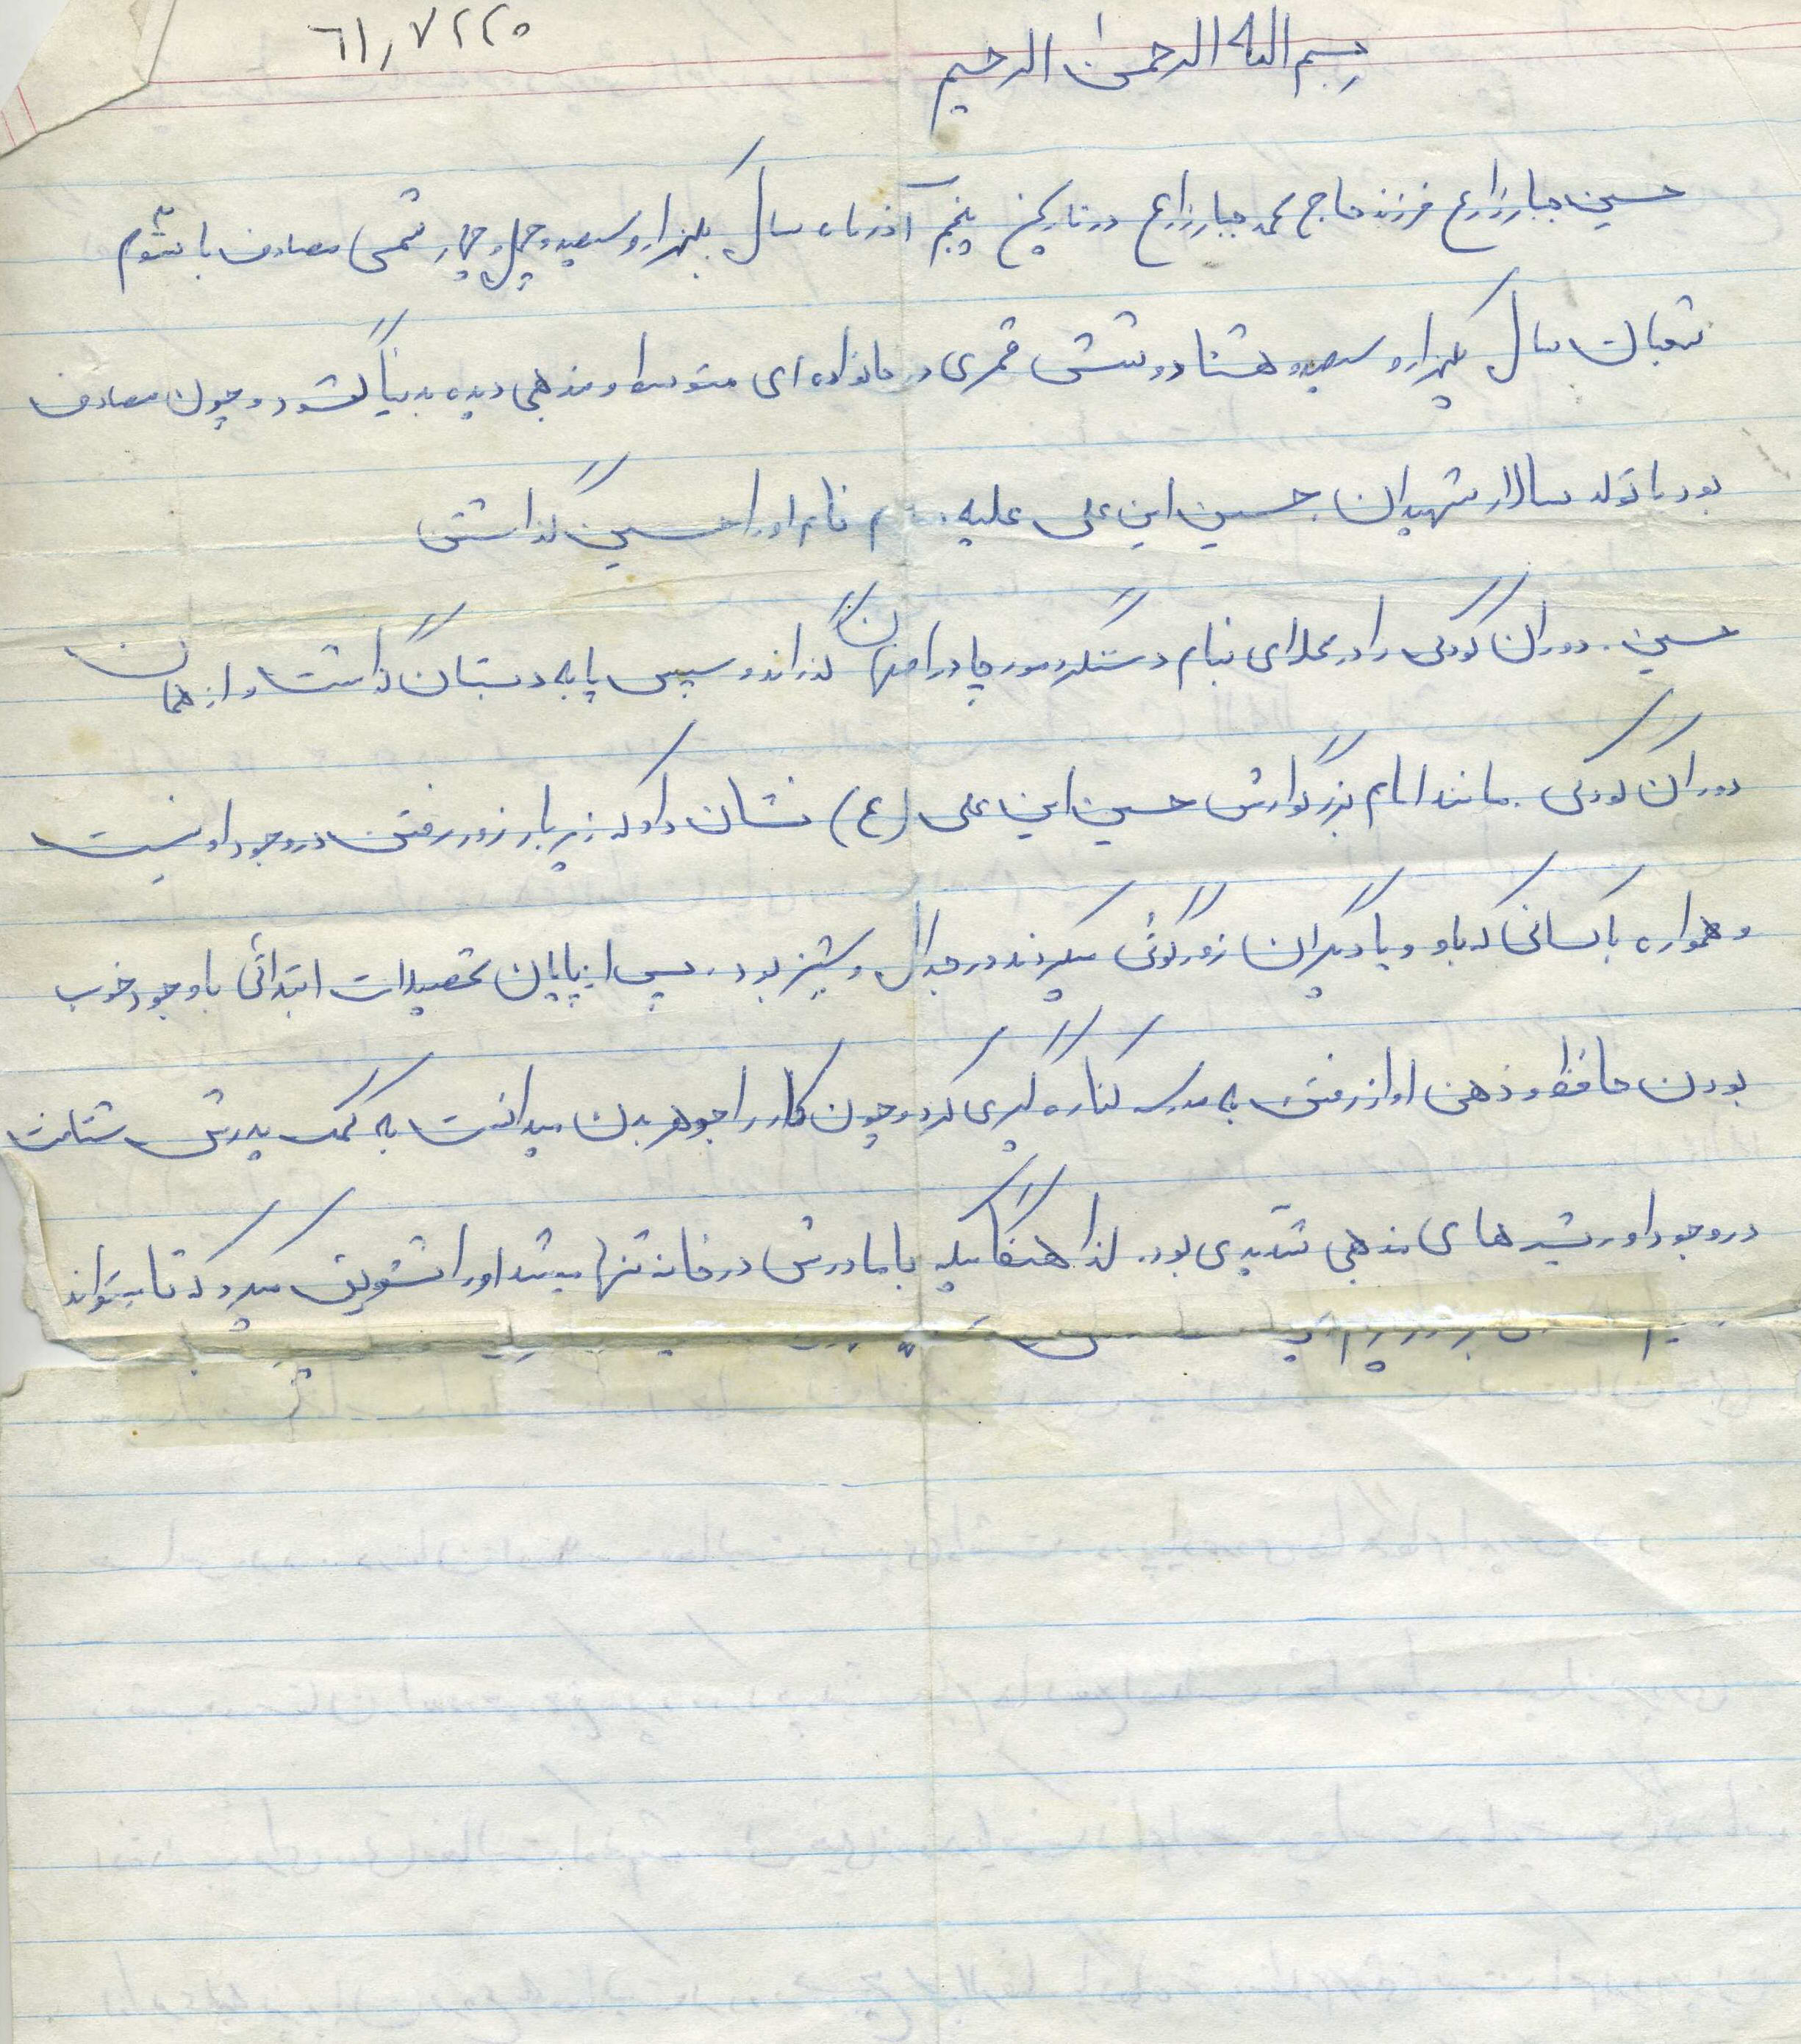 ٦١٫٧٢٢٥
بسم الله الرحمن الرحیم
حسین جبارزارع فرزند حاج محمد جبارزارع در تاریخ پنجم آذر ماه سال یکهزار و سیصد و چهل و چهار شمسی مصادف با سوم
شعبان سال یکهزار و سیصد و هشتاد و شش قمری در خانواده ای متوسط و مذهبی دیده به دنیا گشود و چون مصادف
بود با تولد سالار شهیدان حسین ابن علی علیه نام او را حسین گذاشتن
حسین دوران کودکی را در محله ای بنام دستگرد گذراند و سپس پا به دبستان گذاشت و از همان
دوران کودکی بمانند امام بزرگوارش حسین ابن علی (ع) نشان داد که زیر بار زور رفتن در وجود او نیست
و همواره با کسانی که باو و یا دیگران زورگوئی میکردند در جدال و ستیز بود. پس از پایان تحصیلات ابتدائی با وجود خوب
بودن حافظه و ذهن او از رفتن به مدرسه کناره گیری کرد و چون کار را جوهر بدن میدانست به کمک پدرش شتافت
در وجود او ریشه های مذهبی شدیدی بود. لذا هنگامیکه با مادرش در خانه تنها میشد او را تشویق میکرد که تا میتواند